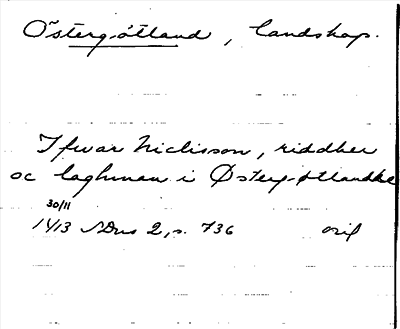 Östergötland, landskap.
Ifwar Niclisson, riddher
oc laghman i Østergøtlandhe
30/11
1413 SDns 2, s. 736 orig